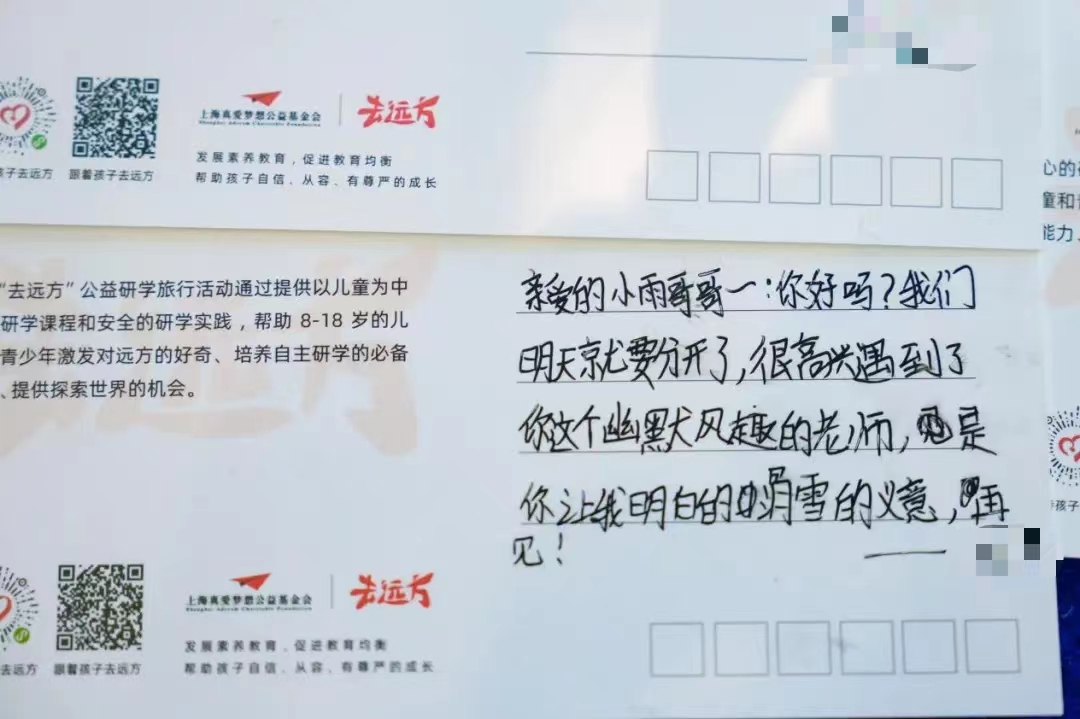 上海真爱梦想公益基金会
Shanghai Adream Charitable Foundation
去远方
孩子去远方
跟着孩子去远方
发展素养教育，促进教育均衡
帮助孩子自信、从容、有尊严的成长
心的
童和
能力、
“去远方”公益研学旅行活动通过提供以儿童为中
研学课程和安全的研学实践，帮助 8-18 岁的儿
青少年激发对远方的好奇、培养自主研学的必备
、提供探索世界的机会。
亲爱的小雨哥哥一：你好吗？我们
明天就要分开了，很高兴遇到了
你这个幽默风趣的老师，是
你让我明白的滑雪的义意，再
见！
上海真爱梦想公益基金会
Shanghai Adream Charitable Foundation
去远方
去远方
跟着孩子去远方
发展素养教育，促进教育均衡
帮助孩子自信、从容、有尊严的成长